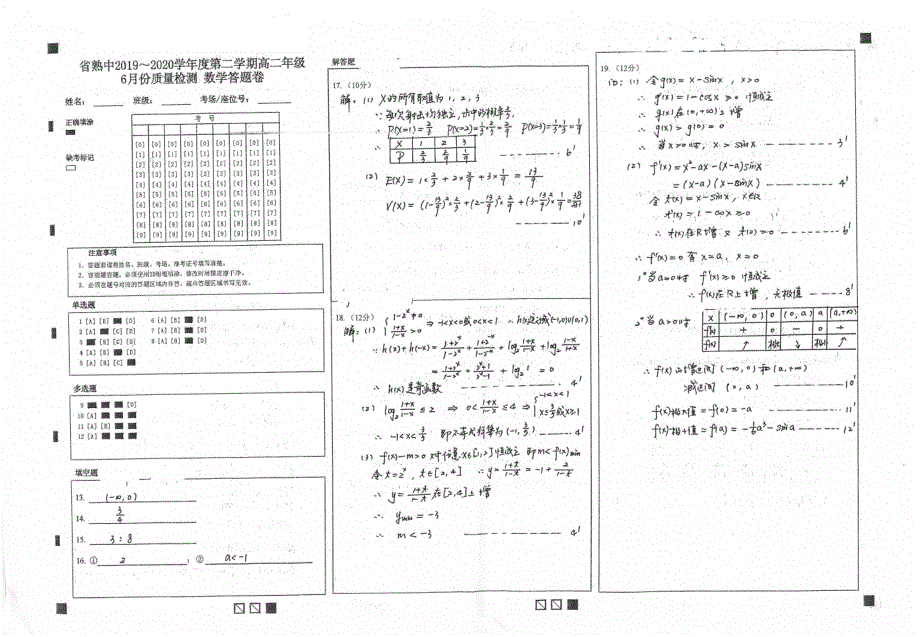 省熟中2019～2020学年度第二学期高二年级
6月份质量检测 数学答题卷
姓名: 班级: 考场/座位号:
正确填涂
缺考标记
考 号
[0] [0] [0] [0] [0] [0] [0] [0]
[1] [1] [1] [1] [1] [1] [1] [1]
[2] [2] [2] [2] [2] [2] [2] [2]
[3] [3] [3] [3] [3] [3] [3] [3]
[4] [4] [4] [4] [4] [4] [4] [4]
[5] [5] [5] [5] [5] [5] [5] [5]
[6] [6] [6] [6] [6] [6] [6] [6]
[7] [7] [7] [7] [7] [7] [7] [7]
[8] [8] [8] [8] [8] [8] [8] [8]
[9] [9] [9] [9] [9] [9] [9] [9]
注意事项
1. 答题前请将姓名、班级、考场、准考证号填写清楚。
2. 客观题答题，必须使用2B铅笔填涂，修改时用橡皮擦干净。
3. 必须在题号对应的答题区域内作答，超出答题区域书写无效。
单选题
1 [A] [B] [D] 6 [A] [B] [D]
2 [A] [C] [D] 7 [A] [B] [D]
3 [B] [C] [D] 8 [A] [C] [D]
4 [A] [B] [D]
5 [A] [B] [C]
多选题
9 [D]
10 [A]
11 [A] [B]
12 [A]
填空题
13. (-∞,0)
14. 3/4
15. 3:8
16. ① 2 ; ② a<-1
解答题
17. (10分)
解: (1) X的所有取值为1, 2, 3
∴ P(X=1)=2/3 P(X=2)=1/3×2/3=2/9 P(X=3)=1/3×1/3=1/9
∴ X 1 2 3
P 2/3 2/9 1/9 6'
(2) E(X)=1×2/3+2×2/9+3×1/9=13/9
V(X)=(1-13/9)²×2/3+(2-13/9)²×2/9+(3-13/9)²×1/9=38/81
10'
18. (12分)
解: (1) {1-2ˣ≠0
(1+x)/(1-x)>0 ⇒ -1<x<0或0<x<1 ∴ h(x)定义域(-1,0)∪(0,1)
∴ h(x)+h(-x)=(1+2ˣ)/(1-2ˣ)+(1+2⁻ˣ)/(1-2⁻ˣ)+log₂(1+x)/(1-x)+log₂(1-x)/(1+x)
=(1+2ˣ)/(1-2ˣ)+(2ˣ+1)/(2ˣ-1)+log₂1=0
∴ h(x)是奇函数 4'
(2) log₂(1+x)/(1-x)≤2 ⇒ 0<(1+x)/(1-x)≤4 ⇒ {-1<x<1
x≤3/5或x>1
∴ -1<x≤3/5 即不等式解集为(-1,3/5] 4'
(3) f(x)-m>0 对任意x∈[1,2]恒成立 即m<f(x)min
令t=2ˣ, t∈[2,4] ∴ y=(1+t)/(1-t)=-1+2/(1-t)
∴ y=(1+t)/(1-t)在[2,4]上增
∴ ymin=-3
∴ m<-3 4'
19. (12分)
(1) 令g(x)=x-sinx, x>0
∴ g'(x)=1-cosx≥0 恒成立
∴ g(x)在(0,+∞)上增
∴ g(x)>g(0)=0
∴ 当x>0时, x>sinx 3'
(2) f'(x)=x²-ax-(x-a)sinx
=(x-a)(x-sinx) 4'
令t(x)=x-sinx, x∈R
t'(x)=1-cosx≥0
∴ t(x)在R上增 又t(0)=0 6'
∴ f'(x)=0 有x=a, x=0
1°当a=0时 f'(x)≥0 恒成立
∴ f(x)在R上增, 无极值 8'
2°当a>0时 x (-∞,0) 0 (0,a) a (a,+∞)
f'(x) + 0 - 0 +
f(x) ↑ 极大 ↓ 极小 ↑
∴ f(x)的增区间(-∞,0)和(a,+∞)
减区间(0,a) 10'
f(x)极大值=f(0)=-a 11'
f(x)极小值=f(a)=-1/6a³-sina 12'